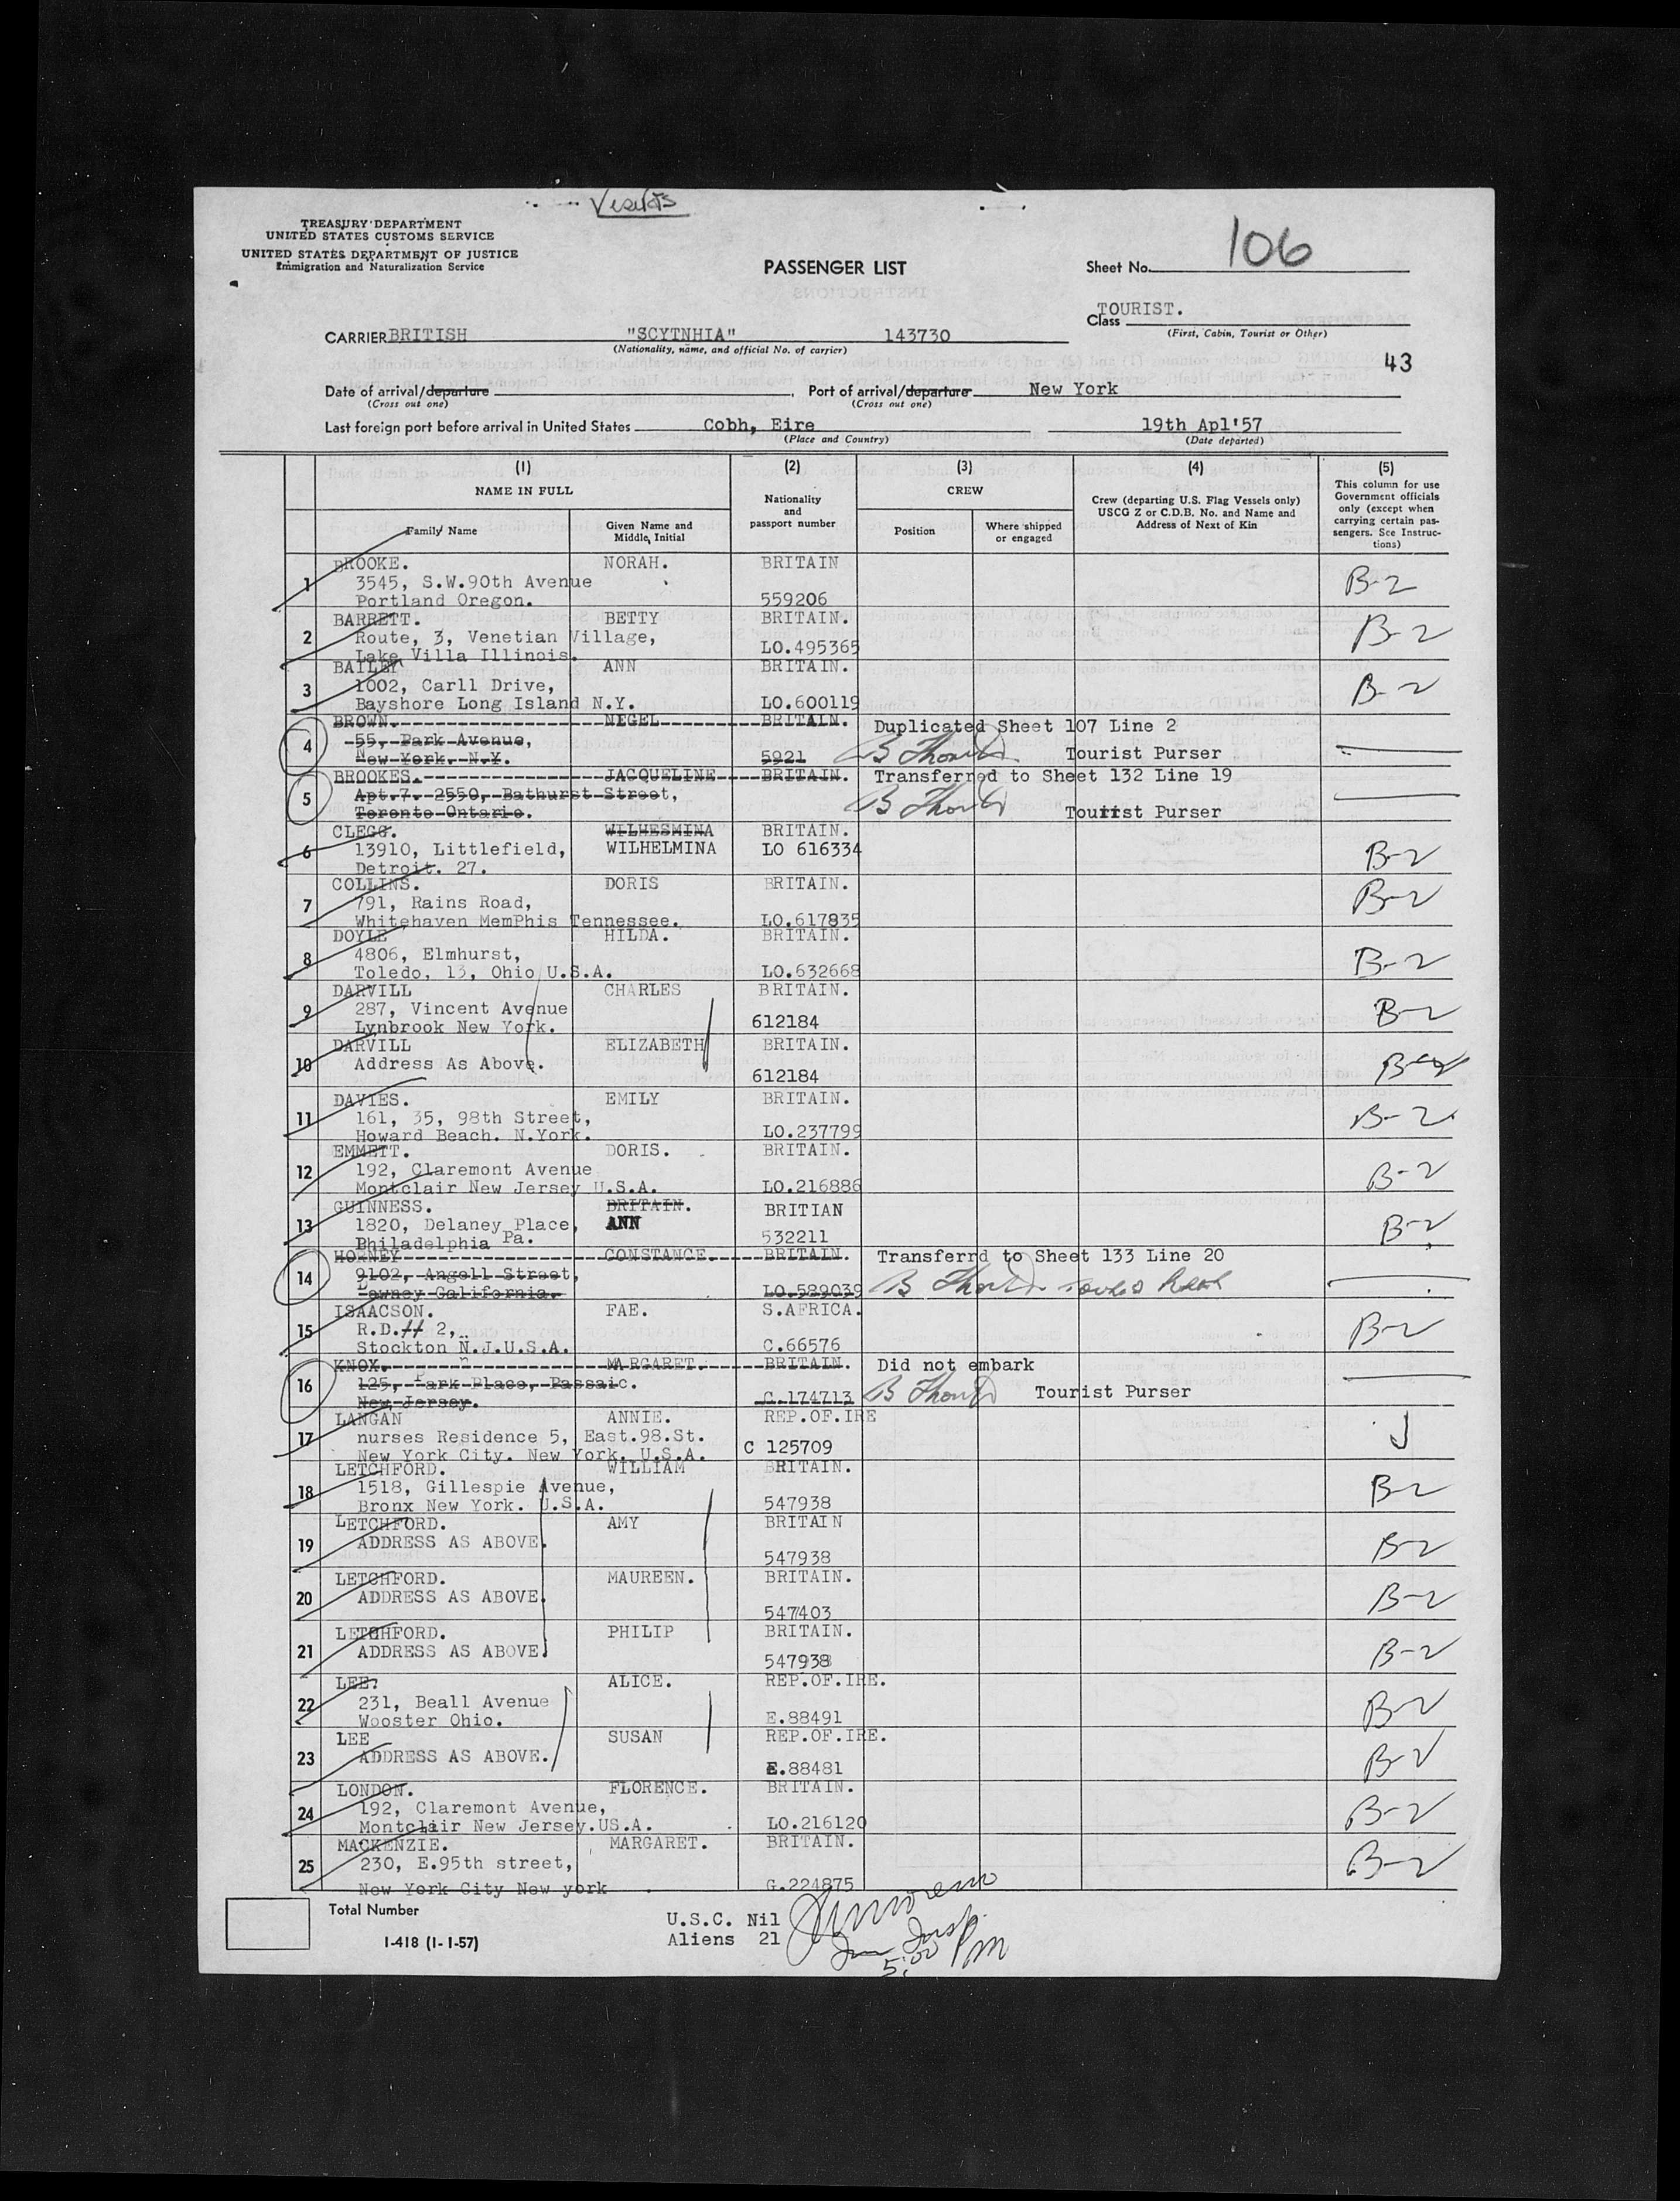 Visitors
TREASURY DEPARTMENT
UNITED STATES CUSTOMS SERVICE
UNITED STATES DEPARTMENT OF JUSTICE
Immigration and Naturalization Service
PASSENGER LIST
Sheet No. 106
TOURIST.
Class
(First, Cabin, Tourist or Other)
CARRIER BRITISH "SCYTNHIA" 143730
(Nationality, name, and official No. of carrier)
43
Date of arrival/departure , Port of arrival/departure New York
(Cross out one) (Cross out one)
Last foreign port before arrival in United States Cobh, Eire 19th Apl'57
(Place and Country) (Date departed)
(1) (2) (3) (4) (5)
NAME IN FULL Nationality and passport number CREW Crew (departing U.S. Flag Vessels only) USCG Z or C.D.B. No. and Name and Address of Next of Kin This column for use Government officials only (except when carrying certain passengers. See Instructions)
Family Name Given Name and Middle Initial Position Where shipped or engaged
1 BROOKE. NORAH. BRITAIN B-2
3545, S.W.90th Avenue
Portland Oregon. 559206
2 BARRETT. BETTY BRITAIN. B-2
Route, 3, Venetian Village,
Lake Villa Illinois. LO.495365
3 BAILEY ANN BRITAIN. B-2
1002, Carll Drive,
Bayshore Long Island N.Y. LO.600119
4 BROWN. NIGEL BRITAIN. Duplicated Sheet 107 Line 2
55, Park Avenue,
New York. N.Y. 5921 Tourist Purser
5 BROOKES. JACQUELINE BRITAIN. Transferred to Sheet 132 Line 19
Apt.7. 2550, Bathurst Street,
Toronto Ontario. Tourist Purser
6 CLEGG. WILHESMINA BRITAIN.
13910, Littlefield, WILHELMINA LO 616334 B-2
Detroit. 27.
7 COLLINS. DORIS BRITAIN. B-2
791, Rains Road,
Whitehaven MemPhis Tennessee. LO.617835
8 DOYLE HILDA. BRITAIN. B-2
4806, Elmhurst,
Toledo, 13, Ohio U.S.A. LO.632668
9 DARVILL CHARLES BRITAIN. B-2
287, Vincent Avenue
Lynbrook New York. 612184
10 DARVILL ELIZABETH BRITAIN. B-2
Address As Above. 612184
11 DAVIES. EMILY BRITAIN. B-2
161, 35, 98th Street,
Howard Beach. N.York. LO.237799
12 EMMETT. DORIS. BRITAIN. B-2
192, Claremont Avenue
Montclair New Jersey U.S.A. LO.216886
13 GUINNESS. BRITAIN. BRITIAN B-2
1820, Delaney Place, ANN
Philadelphia Pa. 532211
14 HORNEY CONSTANCE. BRITAIN. Transferrd to Sheet 133 Line 20
9102, Angell Street,
Downey California. LO.589039
15 ISAACSON. FAE. S.AFRICA. B-2
R.D.# 2,
Stockton N.J.U.S.A. C.66576
16 KNOX. MARGARET. BRITAIN. Did not embark
125, Park Place, Passaic.
New Jersey. C.174713 Tourist Purser
17 LANGAN ANNIE. REP.OF.IRE J
nurses Residence 5, East.98.St.
New York City. New York. U.S.A. C 125709
18 LETCHFORD. WILLIAM BRITAIN. B-2
1518, Gillespie Avenue,
Bronx New York. U.S.A. 547938
19 LETCHFORD. AMY BRITAIN B-2
ADDRESS AS ABOVE. 547938
20 LETCHFORD. MAUREEN. BRITAIN. B-2
ADDRESS AS ABOVE. 547403
21 LETCHFORD. PHILIP BRITAIN. B-2
ADDRESS AS ABOVE. 547938
22 LEE. ALICE. REP.OF.IRE. B-2
231, Beall Avenue
Wooster Ohio. E.88491
23 LEE SUSAN REP.OF.IRE. B-2
ADDRESS AS ABOVE. E.88481
24 LONDON. FLORENCE. BRITAIN. B-2
192, Claremont Avenue,
Montclair New Jersey.US.A. LO.216120
25 MACKENZIE. MARGARET. BRITAIN. B-2
230, E.95th street,
New York City New york G.224875
Total Number
U.S.C. Nil
I-418 (1-1-57) Aliens 21
5:00 PM